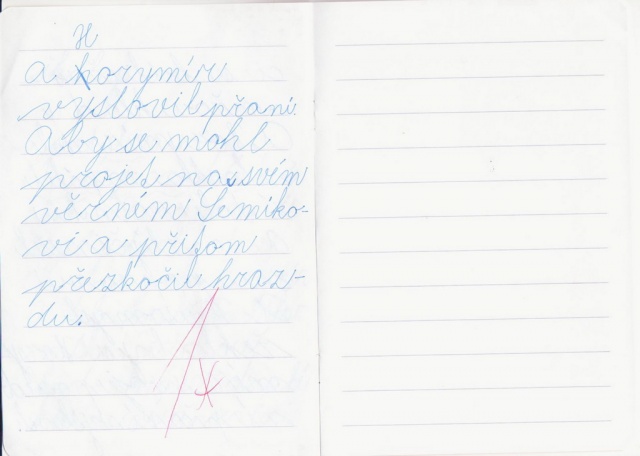 H
a horymír
vyslovil přaní.
Aby se mohl
projet na svém
věrném Šemíko-
vi a přitom
přezkočil hraz-
du.